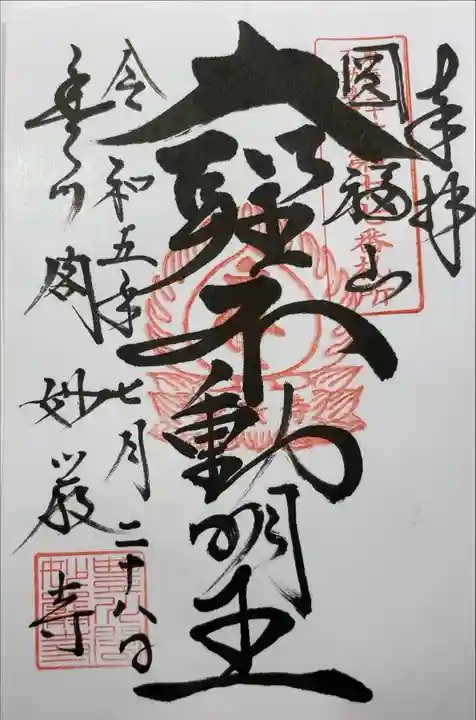 奉拝
圓福山
大聖不動明王
令和五年七月二十八日
豊川閣 妙厳寺